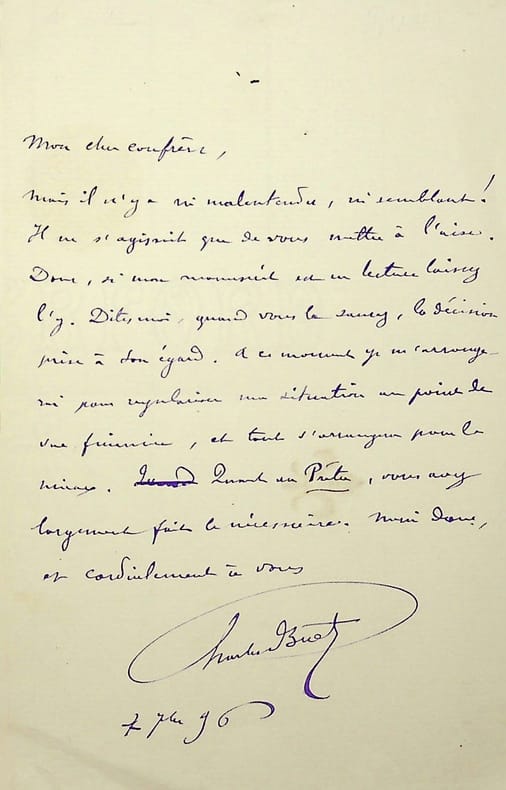 Mon cher confrère,
Mais il n'y a ni malentendu, ni semblant!
Il ne s'agissait que de vous mettre à l'aise.
Donc, si mon manuscrit est en lecture laissez
l'y. Dites moi, quand vous le saurez, la décision
prise à son égard. A ce moment je m'arrange-
rai pour régulariser ma situation au point de
vue financier, et tout s'arrangera pour le
mieux. Quand Quant au Prêtre, vous avez
largement fait le nécessaire. Merci donc,
et cordialement à vous
Charles Buet
7 7bre 96